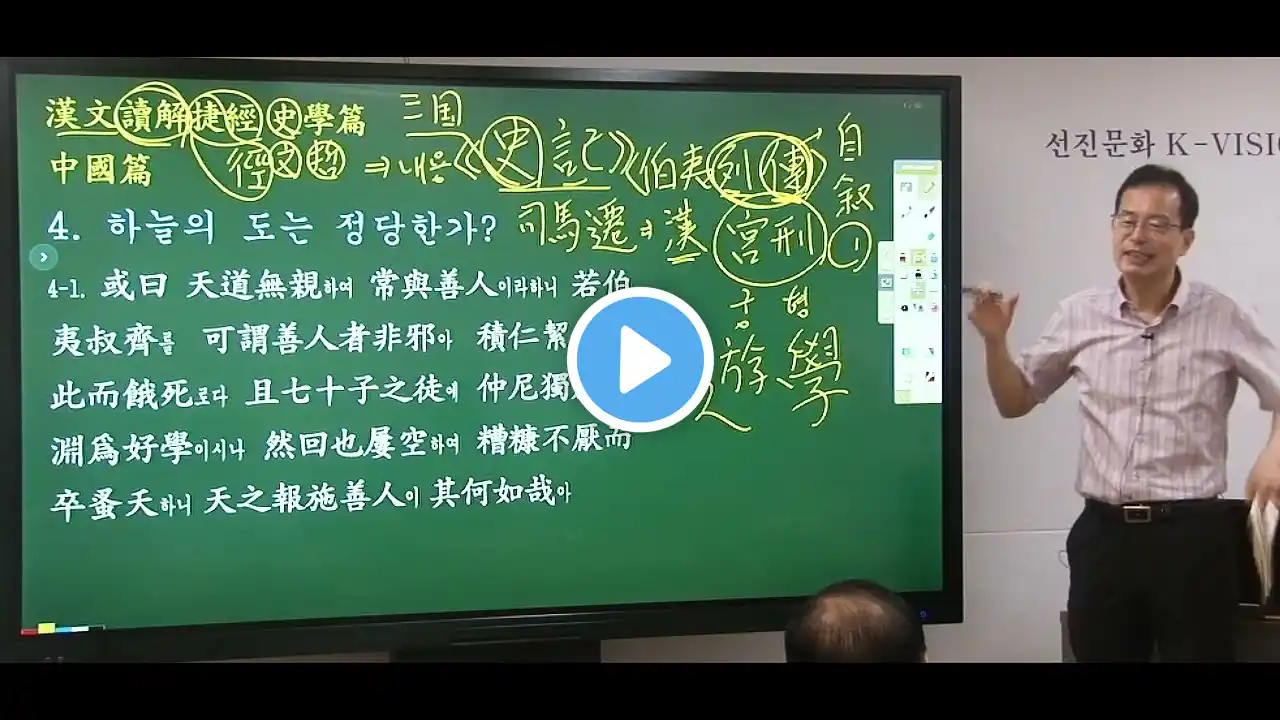 漢文讀解捷經 史學篇
三国
中國篇
徑 文 哲 ⇒ 내용《史記》〈伯夷列傳〉自叙
4. 하늘의 도는 정당한가?
司馬遷 ⇒ 漢 宮刑 ①
궁 형
遊學
4-1. 或曰 天道無親하여 常與善人이라하니 若伯
夷叔齊를 可謂善人者非邪아 積仁絜
此而餓死로다 且七十子之徒에 仲尼獨
淵爲好學이시나 然回也屢空하여 糟糠不厭而
卒蚤夭하니 天之報施善人이 其何如哉아
선진문화 K-VISIO